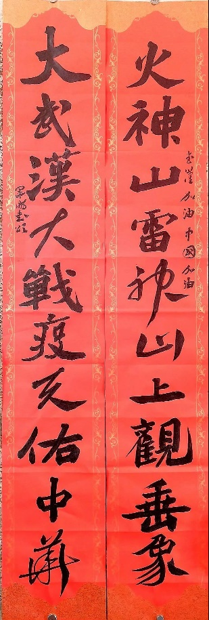 火神山雷神山上觀垂象
加油中國加油
大武漢大戰疫天佑中華